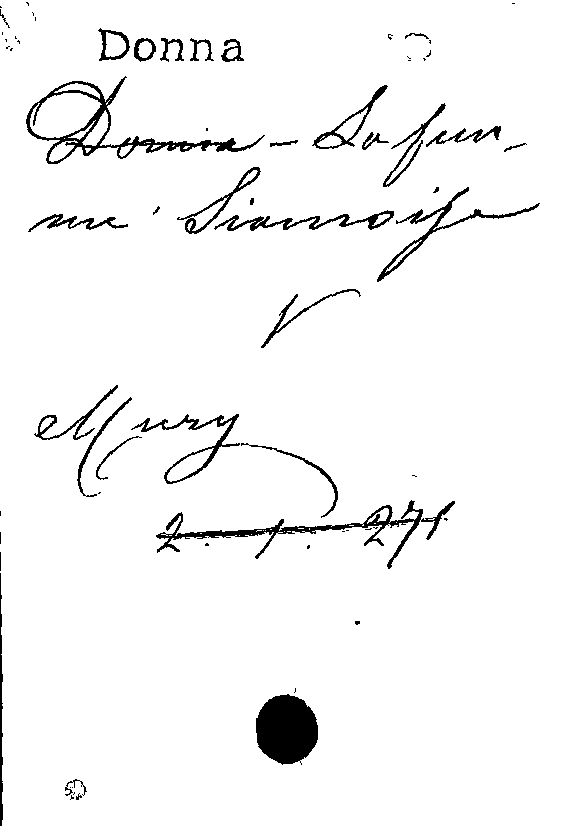 Donna
Donna - La fem-
me Siamoise
V
Mury
2. 1. 271